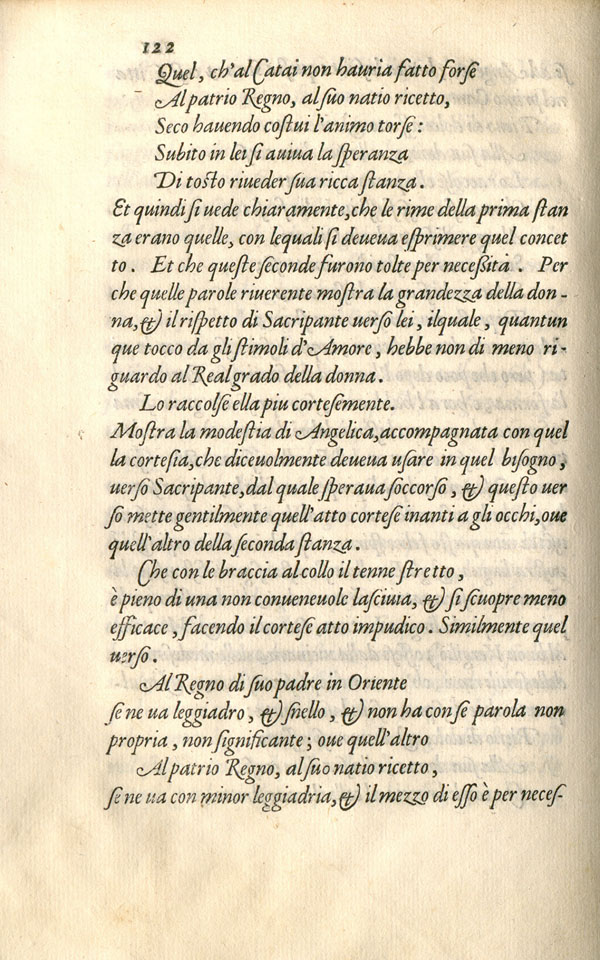 122
Quel, ch'al Catai non hauria fatto forse
Al patrio Regno, al suo natio ricetto,
Seco hauendo costui l'animo torse:
Subito in lei si auiua la speranza
Di tosto riueder sua ricca stanza.
Et quindi si uede chiaramente, che le rime della prima stan
za erano quelle, con lequali si deueua esprimere quel concet
to. Et che queste seconde furono tolte per necessità. Per
che quelle parole riuerente mostra la grandezza della don-
na, & il rispetto di Sacripante uerso lei, ilquale, quantun
que tocco da gli stimoli d'Amore, hebbe non di meno ri-
guardo al Real grado della donna.
Lo raccolse ella piu cortesemente.
Mostra la modestia di Angelica, accompagnata con quel
la cortesia, che diceuolmente deueua usare in quel bisogno,
uerso Sacripante, dal quale speraua soccorso, & questo uer
so mette gentilmente quell'atto cortese inanti a gli occhi, oue
quell'altro della seconda stanza.
Che con le braccia al collo il tenne stretto,
è pieno di una non conueneuole lasciuia, & si scuopre meno
efficace, facendo il cortese atto impudico. Similmente quel
uerso.
Al Regno di suo padre in Oriente
se ne ua leggiadro, & snello, & non ha con se parola non
propria, non significante; oue quell'altro
Al patrio Regno, al suo natio ricetto,
se ne ua con minor leggiadria, & il mezzo di esso è per neces-